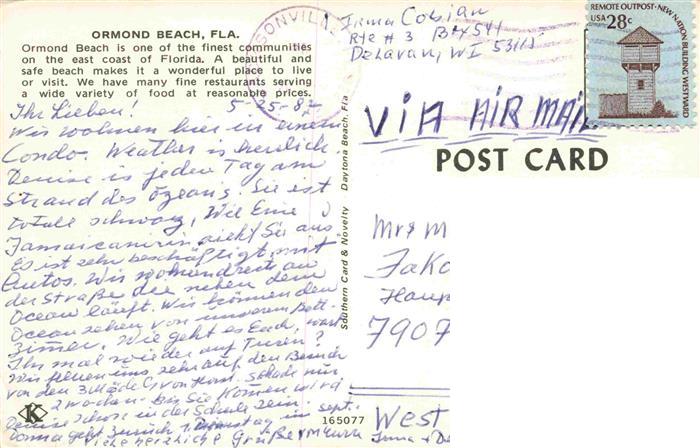 ORMOND BEACH, FLA.
Ormond Beach is one of the finest communities
on the east coast of Florida. A beautiful and
safe beach makes it a wonderful place to live
or visit. We have many fine restaurants serving
a wide variety of food at reasonable prices.
5-25-82
Ihr Lieben!
Wir wohnen hier in einem
Condo. Weather is herrlich
Denise is jeden Tag am
Strand des Ozeans. Sie ist
totall schwarz, Wie Eine
Jamaicanerin sieht Sie aus
Es ist sehr beschäftigt mit
Autos. Wir wohnen direkt an
der Straße die neben dem
Ocean läuft. Wir können den
Ocean sehen von unseren Bett-
Zimmer. Wie geht es Euch, wart
Ihr mal wieder auf Turen?
Wir freuen uns sehr auf den Besuch
von den 3 Mädels von Horst. Schade nur
2 wochen. Bis Sie kommen wird
Denise schon in der Schule sein.
Donna geht zurück 1. Dienstag im Sept.
Viele herzliche Grüße
K
Southern Card & Novelty Daytona Beach, Fla
165077
SONVILL
Irma Cobian
Rte # 3 Box 541
Delavan, WI 53115
REMOTE OUTPOST · NEW NATION BUILDING WESTWARD
USA 28c
VIA AIR MAIL
POST CARD
Mr & M
Jako
Haup
7907
West
Irma + D